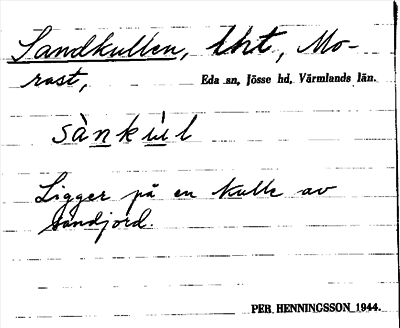 Sandkullen, lht, Mo-
rast, Eda sn, Jösse hd, Värmlands län.
sànkùl
Ligger på en kulle av
sandjord.
PER HENNINGSSON 1944.